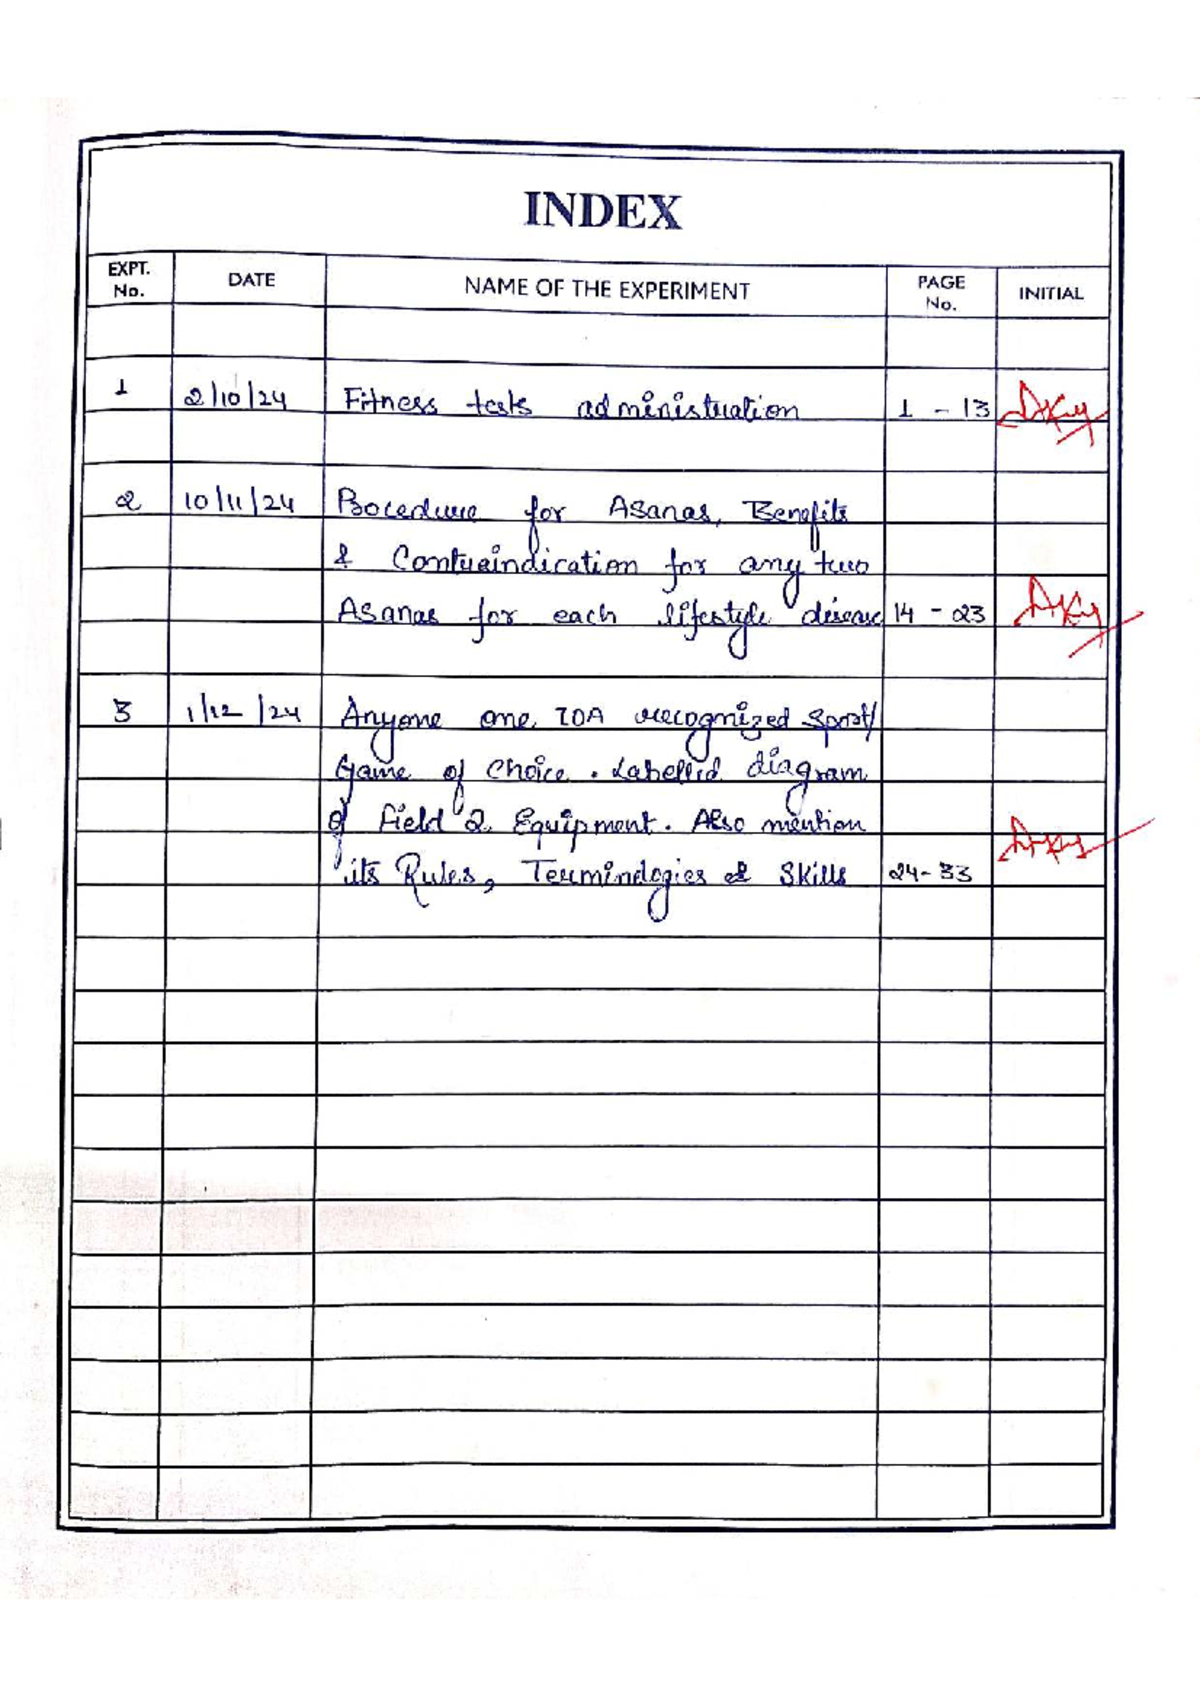 INDEX
EXPT. No. DATE NAME OF THE EXPERIMENT PAGE No. INITIAL
1 2/10/24 Fitness tests administration 1 - 13
2 10/11/24 Procedure for Asanas, Benefits
& Contraindication for any two
Asanas for each lifestyle disease 14 - 23
3 1/12/24 Anyone one IOA recognized Sport/
Game of choice. Labelled diagram
of field & Equipment. Also mention
its Rules, Terminologies & Skills 24-33